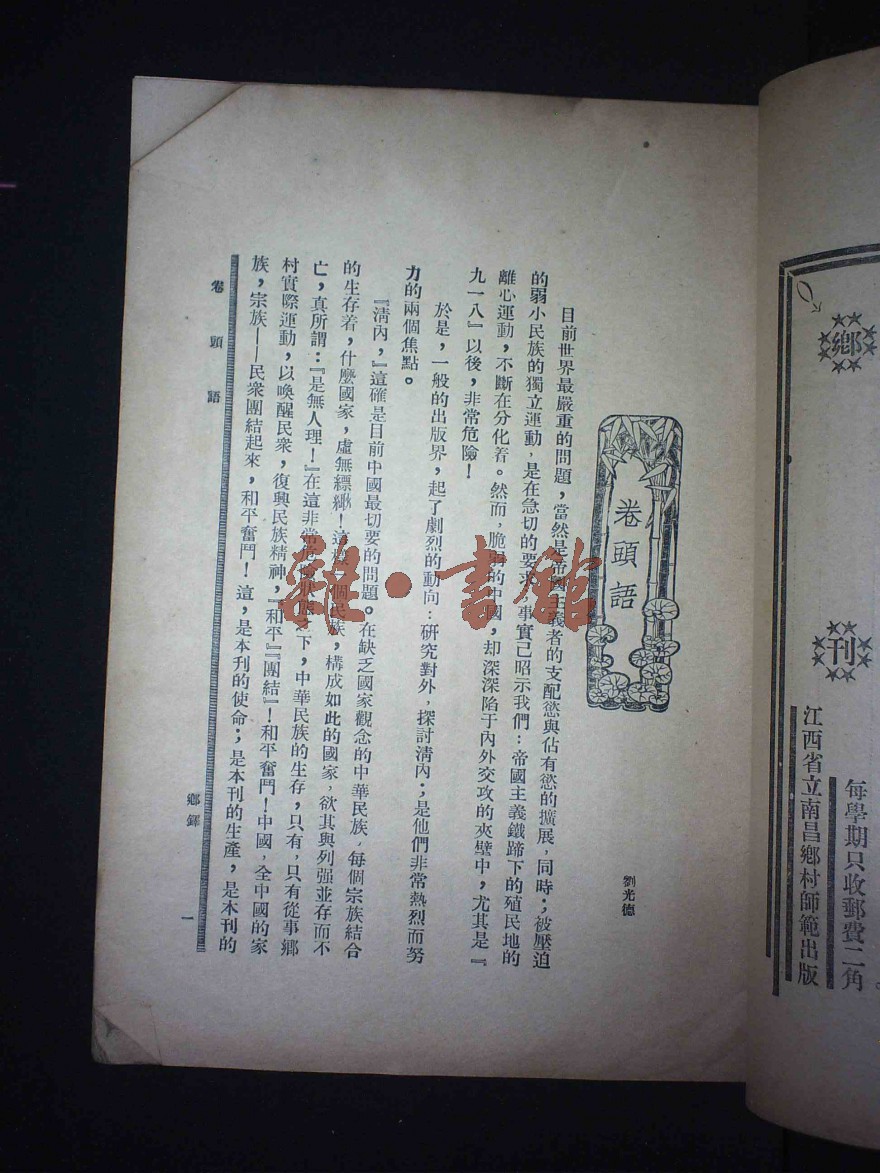 鄉
刊
每學期只收郵費二角
江西省立南昌鄉村師範出版
卷頭語
劉光德
目前世界最嚴重的問題，當然是帝國主義者的支配慾與佔有慾的擴展，同時；被壓迫
的弱小民族的獨立運動，是在急切的要求。事實已昭示我們：帝國主義鐵蹄下的殖民地的
離心運動，不斷在分化着。然而，脆弱的中國，却深深陷于內外交攻的夾壁中，尤其是『
九一八』以後，非常危險！
於是，一般的出版界，起了劇烈的動向：研究對外，探討淸內；是他們非常熱烈而努
力的兩個焦點。
『淸內，』這確是目前中國最切要的問題。在缺乏國家觀念的中華民族，每個宗族結合
的生存着，什麼國家，虛無縹緲！這樣一個民族，構成如此的國家，欲其與列强並存而不
亡，真所謂：『是無人理！』在這非常狀態之下，中華民族的生存，只有，只有從事鄉
村實際運動，以喚醒民衆，復興民族精神，『和平』『團結』！和平奮鬥！中國，全中國的家
族，宗族——民衆團結起來，和平奮鬥！這，是本刊的使命；是本刊的生產，是本刊的
卷頭語
鄉鐸
一
雜·書館